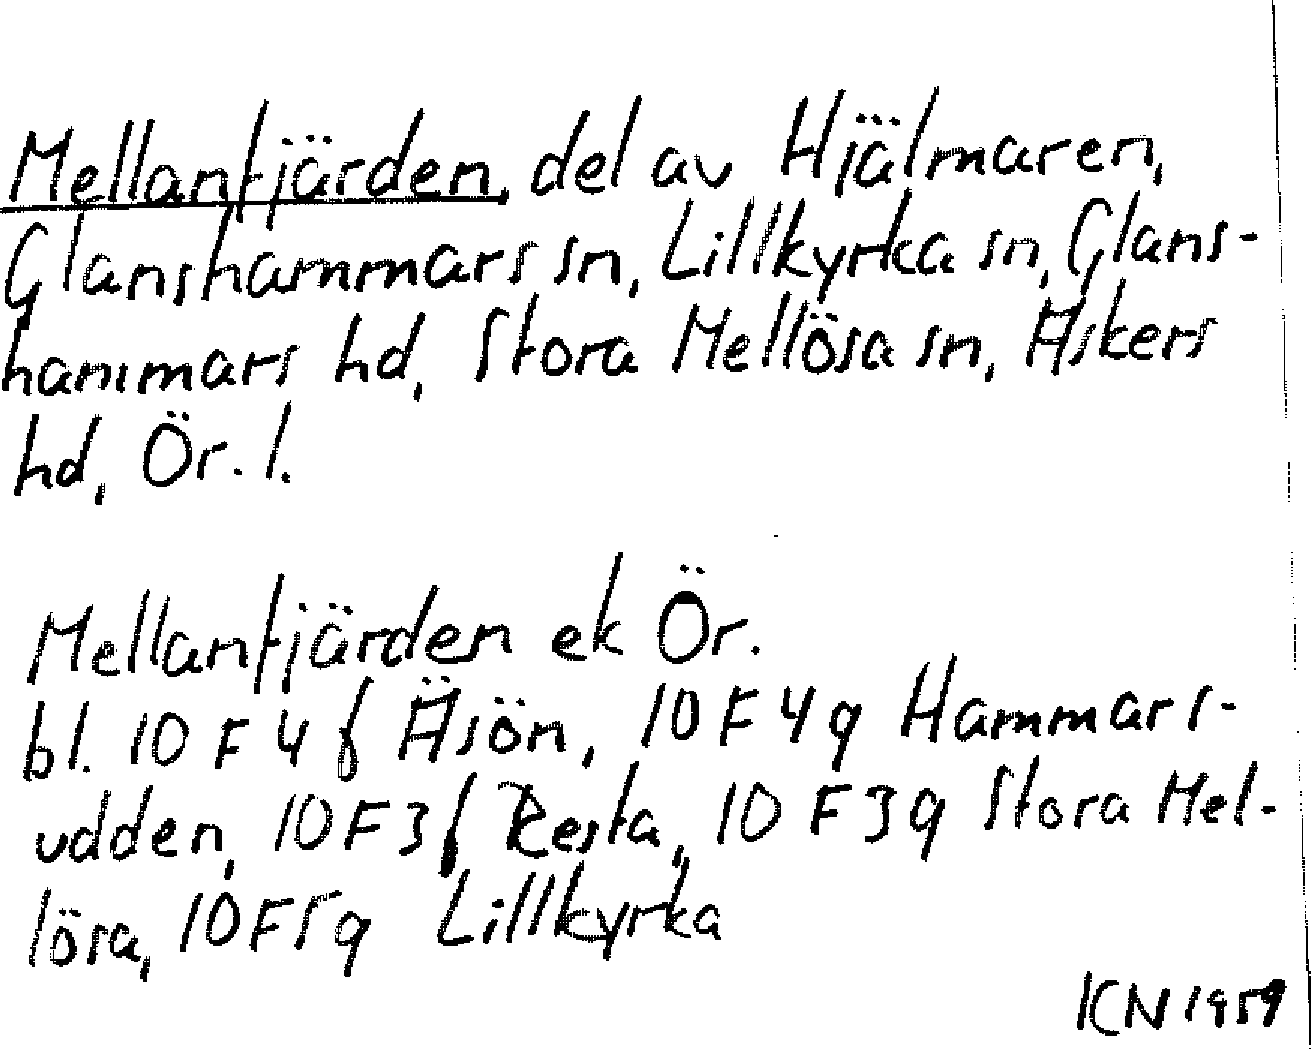 Mellanfjärden, del av Hjälmaren,
Glanshammars sn, Lillkyrka sn, Glans-
hammars hd, Stora Mellösa sn, Askers
hd, Ör. l.
Mellanfjärden ek Ör.
bl. 10 F 4 f Äsön, 10 F 4 g Hammars-
udden, 10 F 3 f Resta, 10 F 3 g Stora Mel-
lösa, 10 F 5 g Lillkyrka
KN 1959